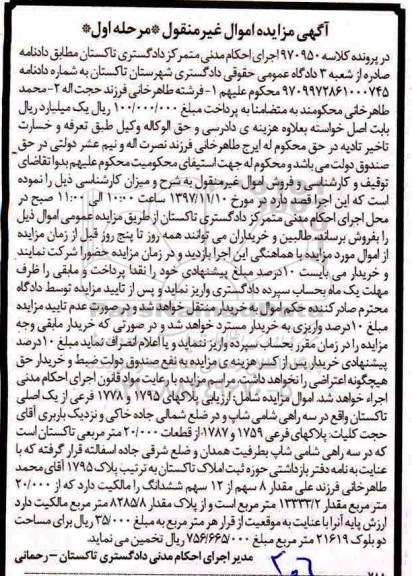 آگهی مزایده اموال غیرمنقول *مرحله اول*
در پرونده کلاسه ۹۷۰۹۵۰ اجرای احکام مدنی متمرکز دادگستری تاکستان مطابق دادنامه
صادره از شعبه ۳ دادگاه عمومی حقوقی دادگستری شهرستان تاکستان به شماره دادنامه
۹۷۰۹۹۷۲۸۶۱۰۰۰۷۴۵ محکوم علیهم ۱- فرشته طاهرخانی فرزند حجت اله ۲- محمد
طاهرخانی محکومند به متضامنا به پرداخت مبلغ ۱۰۰/۰۰۰/۰۰۰ ریال یک میلیارد ریال
بابت اصل خواسته بعلاوه هزینه ی دادرسی و حق الوکاله وکیل طبق تعرفه و خسارت
تاخیر تادیه در حق محکوم له ایرج طاهرخانی فرزند نصرت اله و نیم عشر دولتی در حق
صندوق دولت می باشد و محکوم له جهت استیفای محکومیت محکوم علیهم بدوا تقاضای
توقیف و کارشناسی و فروش اموال غیرمنقول به شرح و میزان کارشناسی ذیل را نموده
است که این اجرا قصد دارد در مورخ ۱۳۹۷/۱۱/۱۰ ساعت ۱۰:۰۰ الی ۱۱:۰۰ صبح در
محل اجرای احکام مدنی متمرکز دادگستری تاکستان از طریق مزایده عمومی اموال ذیل
را بفروش برساند. طالبین و خریداران می توانند همه روز تا پنج روز قبل از زمان مزایده
از اموال مورد مزایده با هماهنگی این اجرا بازدید و در زمان مزایده حضورا شرکت نمایند
و خریدار می بایست ۱۰درصد مبلغ پیشنهادی خود را نقدا پرداخت و مابقی را ظرف
مهلت یک ماه بحساب سپرده دادگستری واریز نماید و پس از تایید مزایده توسط دادگاه
محترم صادر کننده حکم اموال به خریدار منتقل خواهد شد و در صورت عدم تایید مزایده
مبلغ ۱۰درصد واریزی به خریدار مسترد خواهد شد و در صورتی که خریدار مابقی وجه
مزایده را در زمان مقرر بحساب سپرده واریز ننماید و یا اعلام انصراف نماید مبلغ ۱۰درصد
پیشنهادی خریدار پس از کسر هزینه ی مزایده به نفع صندوق دولت ضبط و خریدار حق
هیچگونه اعتراضی را نخواهد داشت. مراسم مزایده با رعایت مواد قانون اجرای احکام مدنی
اجراء خواهد شد. اموال مزایده شامل: ارزیابی پلاکهای ۱۷۹۵ و ۱۷۷۸ فرعی از یک اصلی
تاکستان واقع در سه راهی شامی شاپ و در ضلع شمالی جاده خاکی و نزدیک باربری آقای
حجت کلیات: پلاکهای فرعی ۱۷۵۹ و ۱۷۸۷ از قطعات ۲۰/۰۰۰ متر مربعی تاکستان است
که در سه راهی شامی شاپ بطرفیت همدان و ضلع شرقی جاده اسفالته قرار گرفته که با
عنایت به نامه دفتر بازداشتی حوزه ثبت املاک تاکستان به ترتیب پلاک ۱۷۹۵ آقای محمد
طاهرخانی فرزند علی مقدار ۸ سهم از ۱۲ سهم ششدانگ را مالکیت دارد که از ۲۰/۰۰۰
متر مربع مقدار ۱۳۳۳۳/۲ متر مربع است و از پلاک مقدار ۸۲۸۵/۸ متر مربع مالکیت دارد
ارزش پایه آنرا با عنایت به موقعیت از قرار هر متر مربع به مبلغ ۳۵/۰۰۰ ریال برای مساحت
دو بلوک ۲۱۶۱۹ متر مربع مبلغ ۷۵۶/۶۶۵/۰۰۰ ریال تخمین می نماید.
مدیر اجرای احکام مدنی دادگستری تاکستان - رحمانی